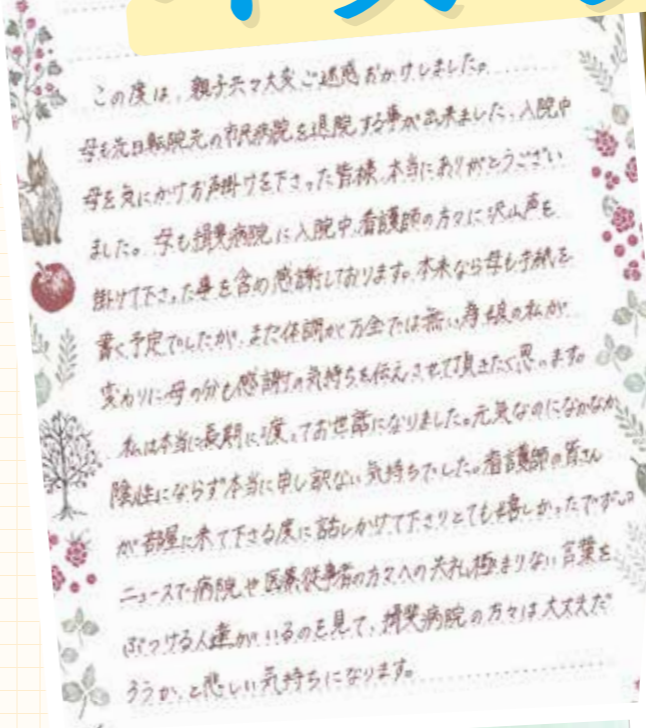 この度は、親子共々大変ご迷惑おかけしました。
母も先日転院元の市民病院を退院する事が出来ました。入院中
母を気にかけお声掛けを下さった皆様、本当にありがとうござい
ました。母も揖斐病院に入院中、看護師の方々に沢山声を
掛けて下さった事を含め感謝しております。本来なら母も手紙を
書く予定でしたが、まだ体調が万全では無い為娘の私が
変わりに母の分も感謝の気持ちを伝えさせて頂きたく思います。
私は本当に長期に渡ってお世話になりました。元気なのになかなか
陰性にならず本当に申し訳ない気持ちでした。看護師の皆さん
が部屋に来て下さる度に話しかけて下さりとても嬉しかったです。
ニュースで病院や医療従事者の方々への失礼極まりない言葉を
ぶつける人達がいるのを見て、揖斐病院の方々は大丈夫だ
ろうか、と悲しい気持ちになります。